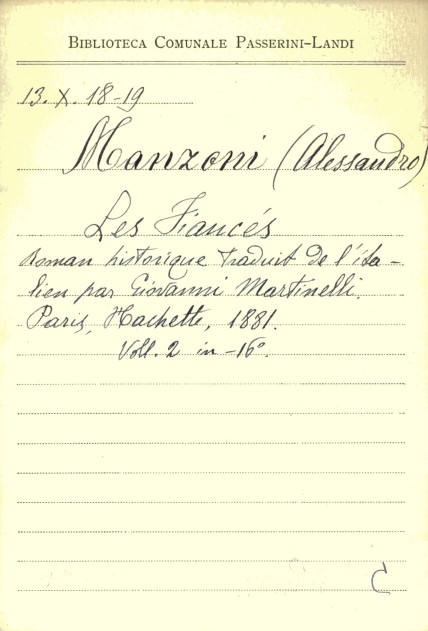 BIBLIOTECA COMUNALE PASSERINI-LANDI
13. X. 18-19
Manzoni (Alessandro)
Les Fiancés
Roman historique traduit de l'ita-
lien par Giovanni Martinelli.
Paris, Hachette, 1881.
Voll. 2 in-16°.
C